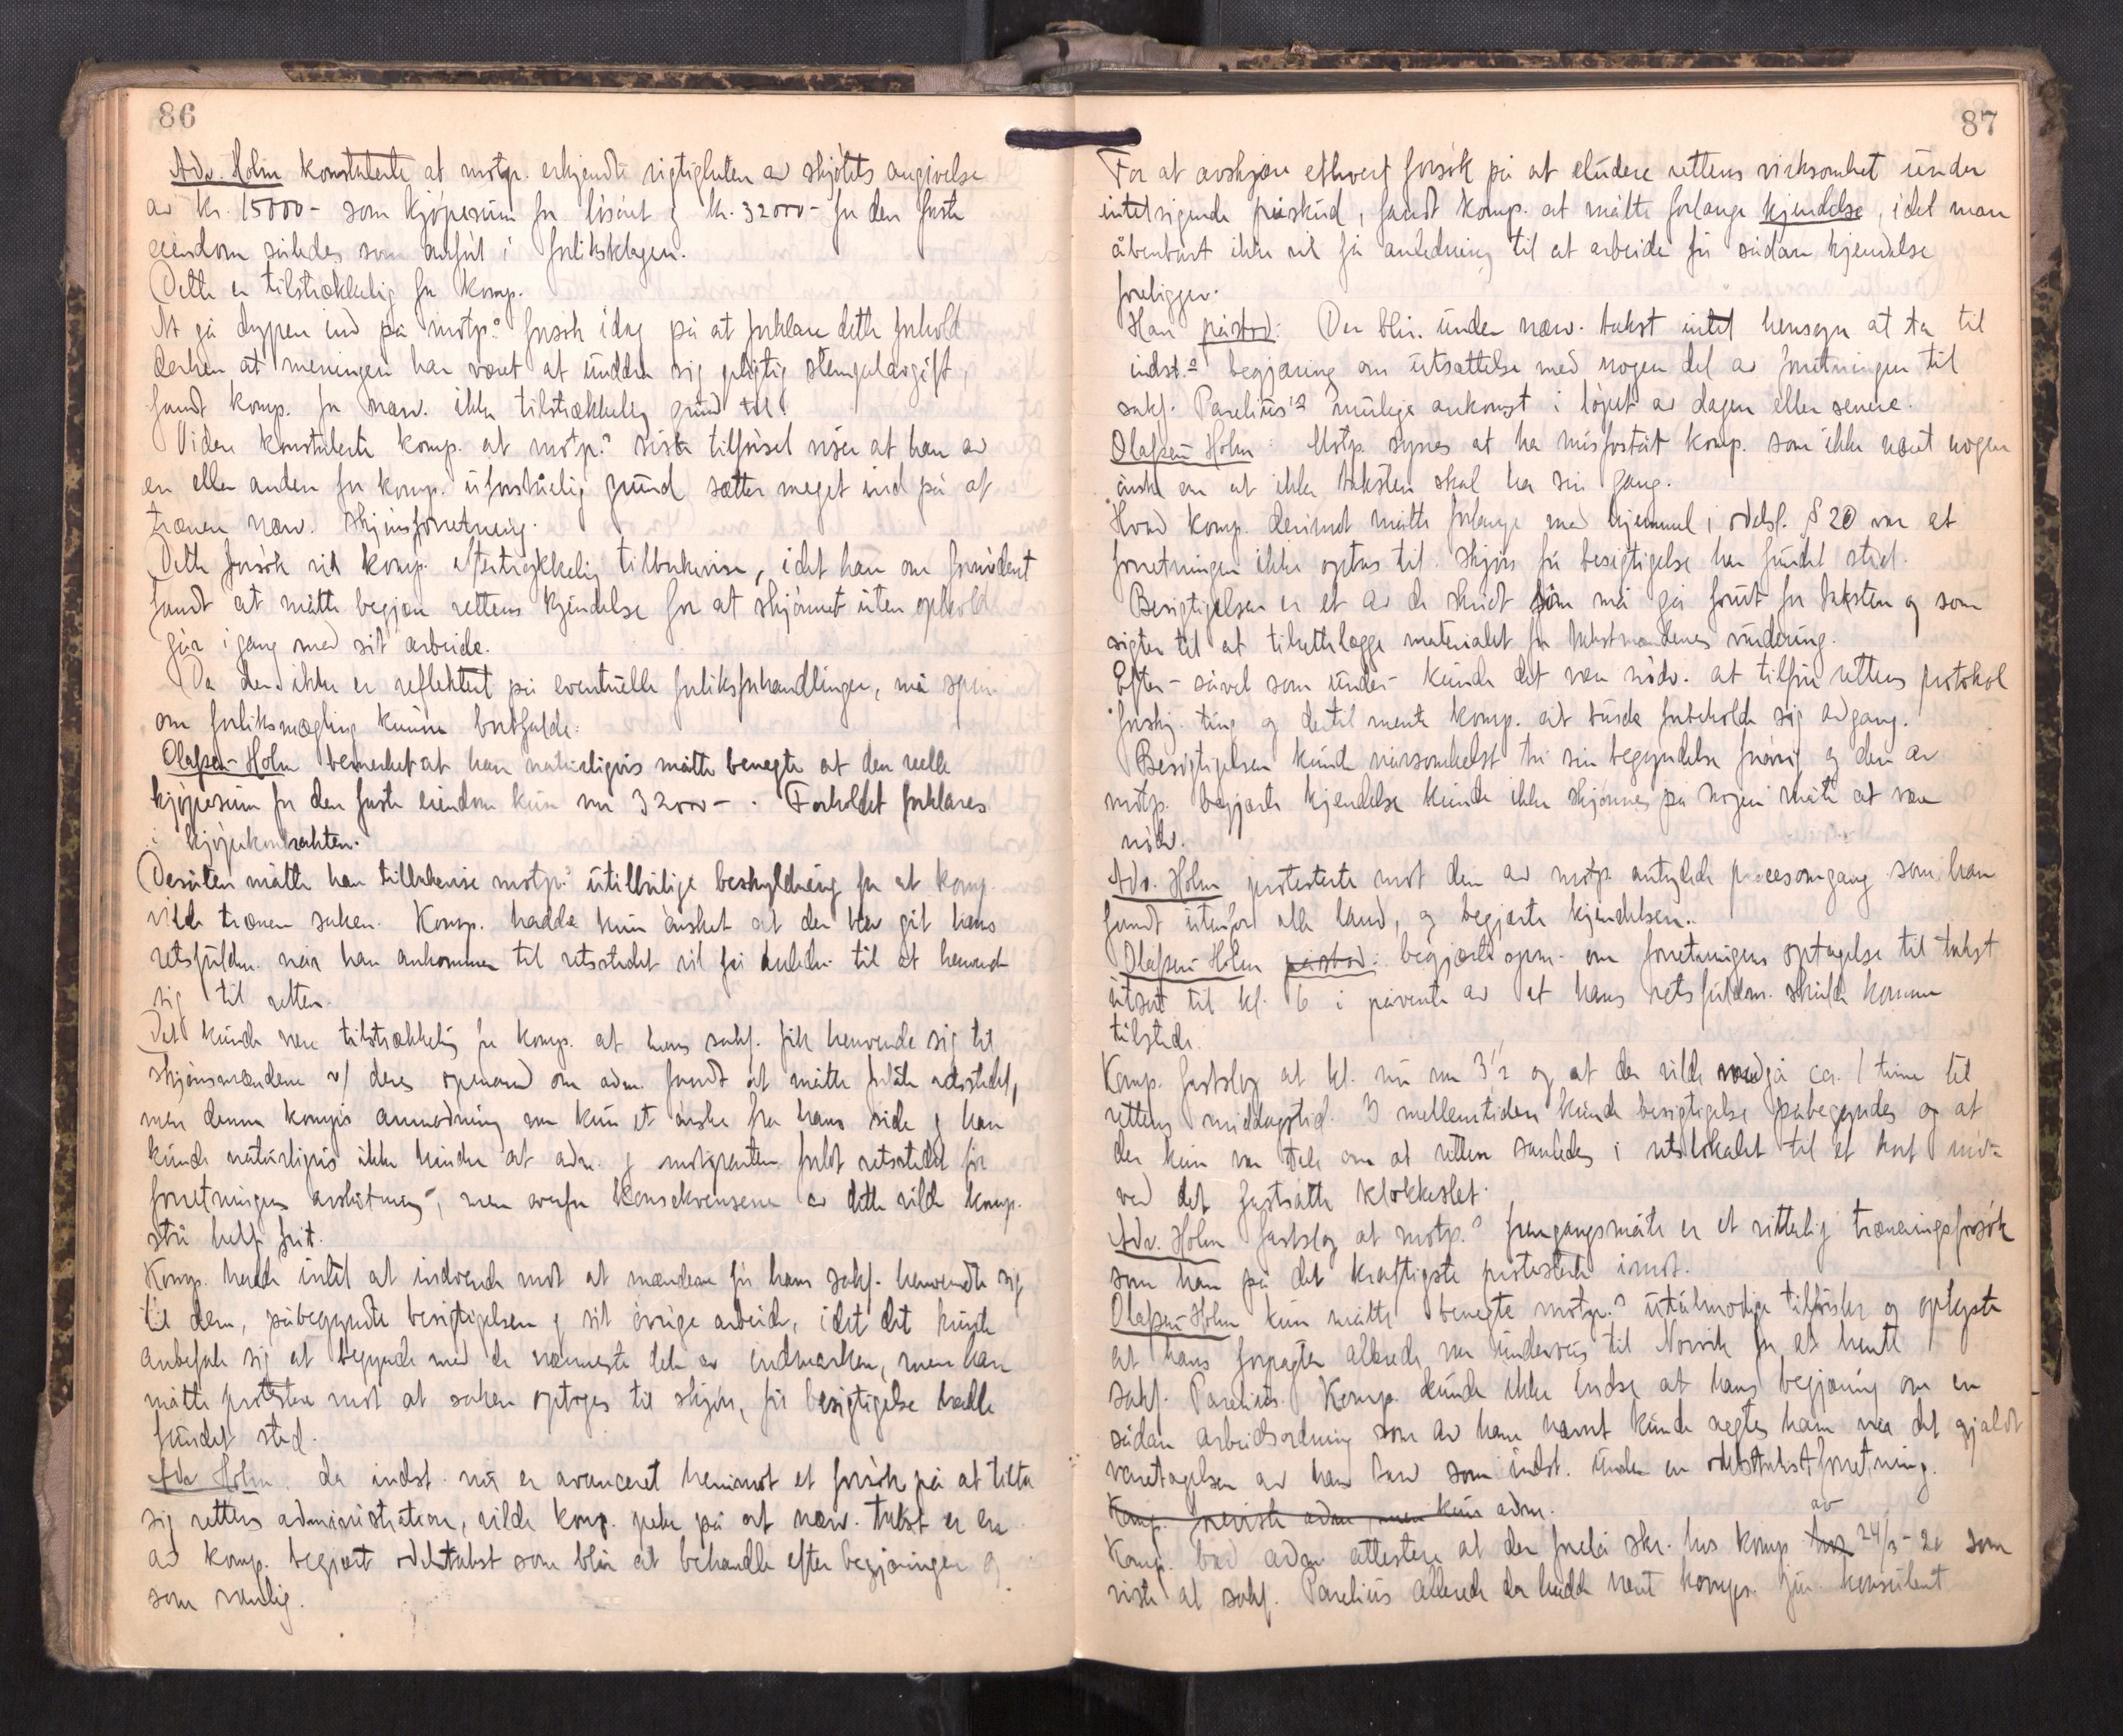 86
Adv. Holm konstaterte at motp. erkjendte rigtigheten av skjötets angivelse
av kr. 15000- som kjöpesum for lösöret og kr. 32000- for den faste
eiendom således som anfört i forliksklagen.
Dette er tilstrækkelig for komp.
At gå dypere ind på motp.s forsök idag på at forklare dette forhold
derhen at meningen har været at unddra sig pligtig stempelavgift,
fandt komp. for nærv. ikke tilstrækkelig grund til.
Videre konstaterte komp. at motp.s siste tilförsel viser at han av
en eller anden for komp. uforståelig grund sætter meget ind på at
trænere nærv. skjönsforretning.
Dette forsök vil komp. eftertrykkelig tilbakevise, idet han om fornödent
fandt at måtte begjære rettens kjendelse for at skjönnet uten ophold
går igang med sit arbeide.
Da der ikke er reflektert på eventuelle forliksforhandlinger, må spm.
om forliksmægling kunne bortfalde.
Olafsen-Holm bemerket at han naturligvis måtte benegte at den reelle
kjöpesum for den faste eiendom kun var 32000-. Forholdet forklares
i kjöpekontrakten.
Desuten måtte han tilbakevise motp.s utilbörlige beskyldning for at komp.
vilde trænere saken. Komp. hadde kun önsket at der blev git hans
retsfuldm. når han ankommer til retsstedet vil få anledn. til at henvende
sig til retten.
Det kunde være tilstrækkelig for komp. at hans sakf. fik henvende sig til
skjönsmændene v/ deres opmand om adm. fandt at måtte forlate retsstedet,
men denne komp.s anmodning var kun et önske fra hans side og han
kunde naturligvis ikke hindre at adm. og motparten forlot retsstedet för
forretningens avslutning, men overfor konsekvensene av dette vilde komp.
stå helt frit.
Komp. hadde intet at indvende mot at mændene för hans sakf. henvendte sig
til dem, påbegyndte besigtigelsen og sit övrige arbeide, idet det kunde
anbefale sig at begynde med de nærmeste dele av indmarken, men han
måtte protestere mot at saken optoges til skjön, för besigtigelse hadde
fundet sted.
Adv. Holm. da indst. nå er avanceret henimot et forsök på at tilta
sig rettens administration, vilde komp. peke på at nærv. takst er en
av komp. begjært odelstakst som blir at behandle efter begjæringen og
som vanlig.
87
For at avskjære ethvert forsök på at eludere rettens virksomhet under
intetsigende påskud, fandt komp. at måtte forlange kjendelse, idet man
åbenbart ikke vil få anledning til at arbeide för sådan kjendelse
foreligger.
Han påstod: Der blir under nærv. takst intet hensyn at ta til
indst.s begjæring om utsættelse med nogen del av forretningen til
sakf. Parelius's mulige ankomst i löpet av dagen eller senere.
Olafsen-Holm: Motp. synes at ha misforståt komp. som ikke nært nogen
önske om at ikke taksten skal ha sin gang.
Hvad komp. derimot måtte forlange med hjemmel i odelsl. § 20 var at
forretningen ikke optas til skjön för besigtigelse har fundet sted.
Besigtigelsen er et av de skridt som må gå forut for taksten og som
sigter til at tilrettelægge materialet for takstmændenes vurdering.
Efter- såvel som under- kunde det være nödv. at tilföre rettens protokol
forskj. ting og dertil mente komp. at burde forbeholde sig adgang.
Besigtigelsen kunde nårsomhelst ta sin begyndelse forövrig og den av
motp. begjærte kjendelse kunde ikke skjönnes på nogen måte at være
nödv.
Adv. Holm protesterte mot den av motp. antydede procesomgang som han
fandt utenfor alle land, og begjærte kjendelsen.
Olafsen-Holm påstod: begjærte spm. om forretningens optagelse til takst
utsat til kl. 6 i påvente av at hans retsfuldm. skulde komme
tilstede.
Komp. fastslog at kl. nu var 3½ og at der vilde medgå ca. 1 time til
rettens middagstid. I mellemtiden kunde besigtigelse påbegyndes og at
der kun var tale om at retten samledes i retslokalet til et kort möte
ved det fastsatte klokkeslet.
Adv. Holm fastslog at motp.s fremgangsmåte er et vitterlig træneringsforsök
som han på det kraftigste protesterte imot.
Olafsen-Holm kun måtte benegte motp.s utålmodige tilförsler og oplyste
at hans forpagter allerede var underveis til Norvik for at hente
sakf. Parelius. Komp. kunde ikke indse at hans begjæring om en
sådan arbeidsordning som av ham nævnt kunde negtes ham når det gjaldt
varetagelsen av hans tarv som indst. under en odelstakstforretning.
Komp. henviste adm. men kun adm.
Komp. bad adm. attestere at der forelå skr. hos komp. av 24/3-20 som
viste at sakf. Parelius allerede da hadde vært komps. jur. konsulent